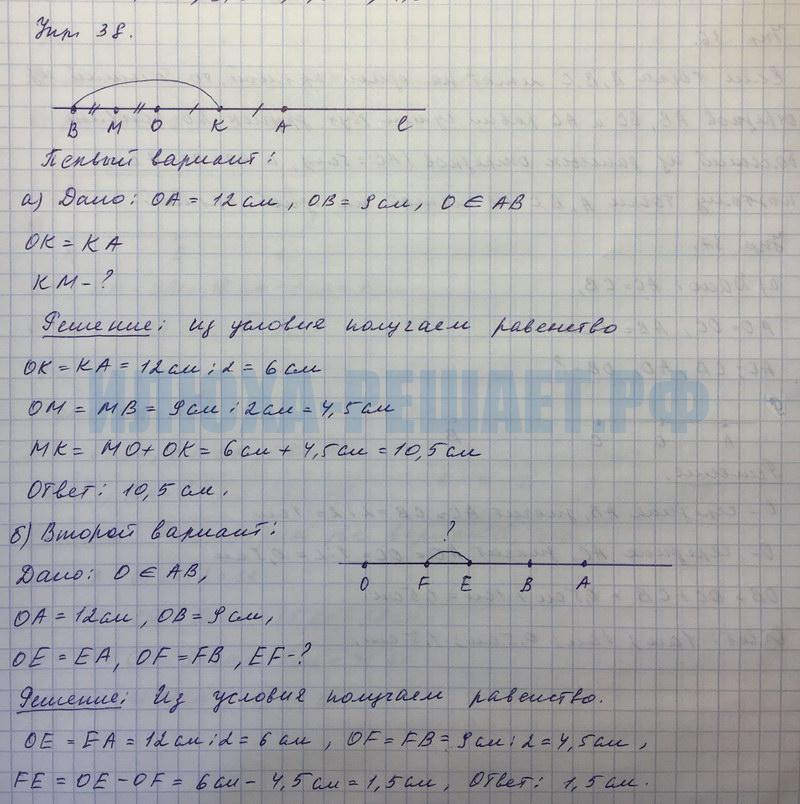 Упр 38.
B M O K A C
Первый вариант:
а) Дано: OA = 12 см, OB = 9 см, O ∈ AB
OK = KA
KM - ?
Решение: из условия получаем равенство
OK = KA = 12 см : 2 = 6 см
OM = MB = 9 см : 2 см = 4,5 см
MK = MO + OK = 6 см + 4,5 см = 10,5 см
Ответ: 10,5 см.
б) Второй вариант:
?
O F E B A
Дано: O ∈ AB,
OA = 12 см, OB = 9 см,
OE = EA, OF = FB, EF - ?
Решение: Из условия получаем равенство.
OE = EA = 12 см : 2 = 6 см, OF = FB = 9 см : 2 = 4,5 см,
FE = OE - OF = 6 см - 4,5 см = 1,5 см, Ответ: 1,5 см.
ИЛЮХА-РЕШАЕТ.РФ